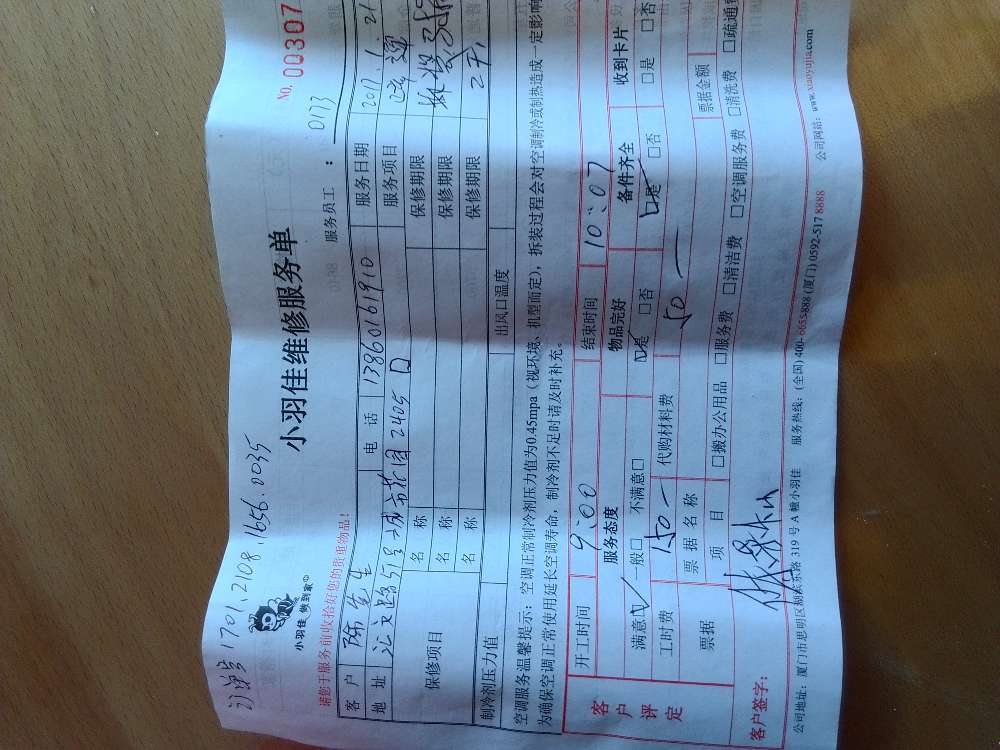 订单号1701.2108.1656.0035
小羽佳 做到家
小羽佳维修服务单
NO. 00307
请您于服务前收拾好您的贵重物品!
服务员工: 0173
客户 陈先生 电话 13860161910 服务日期 2017.1.21
地址 城市花园2405 服务项目
保修项目 名称 保修期限
名称 保修期限
名称 保修期限 2天
制冷剂压力值 出风口温度
空调服务温馨提示:空调正常制冷剂压力值为0.45mpa(视环境、机型而定),拆装过程会对空调制冷或制热造成一定影响
为确保空调正常使用延长空调寿命,制冷剂不足时请及时补充。
客户评定
开工时间 9:00 结束时间 10:07
服务态度 物品完好 备件齐全 收到卡片
满意☑ 一般□ 不满意□ ☑是 □否 ☑是 □否 □是 □否
工时费 150— 代购材料费 50—
票据 票据名称 票据金额
项目 □搬办公用品 □服务费 □清洁费 □空调服务费 □清洗费 □疏通
客户签字:
公司地址:厦门市思明区湖滨东路319号A幢小羽佳 服务热线:(全国)400-6655-888 (厦门)0592-517 8888 公司网站:www.xiaoyujia.com